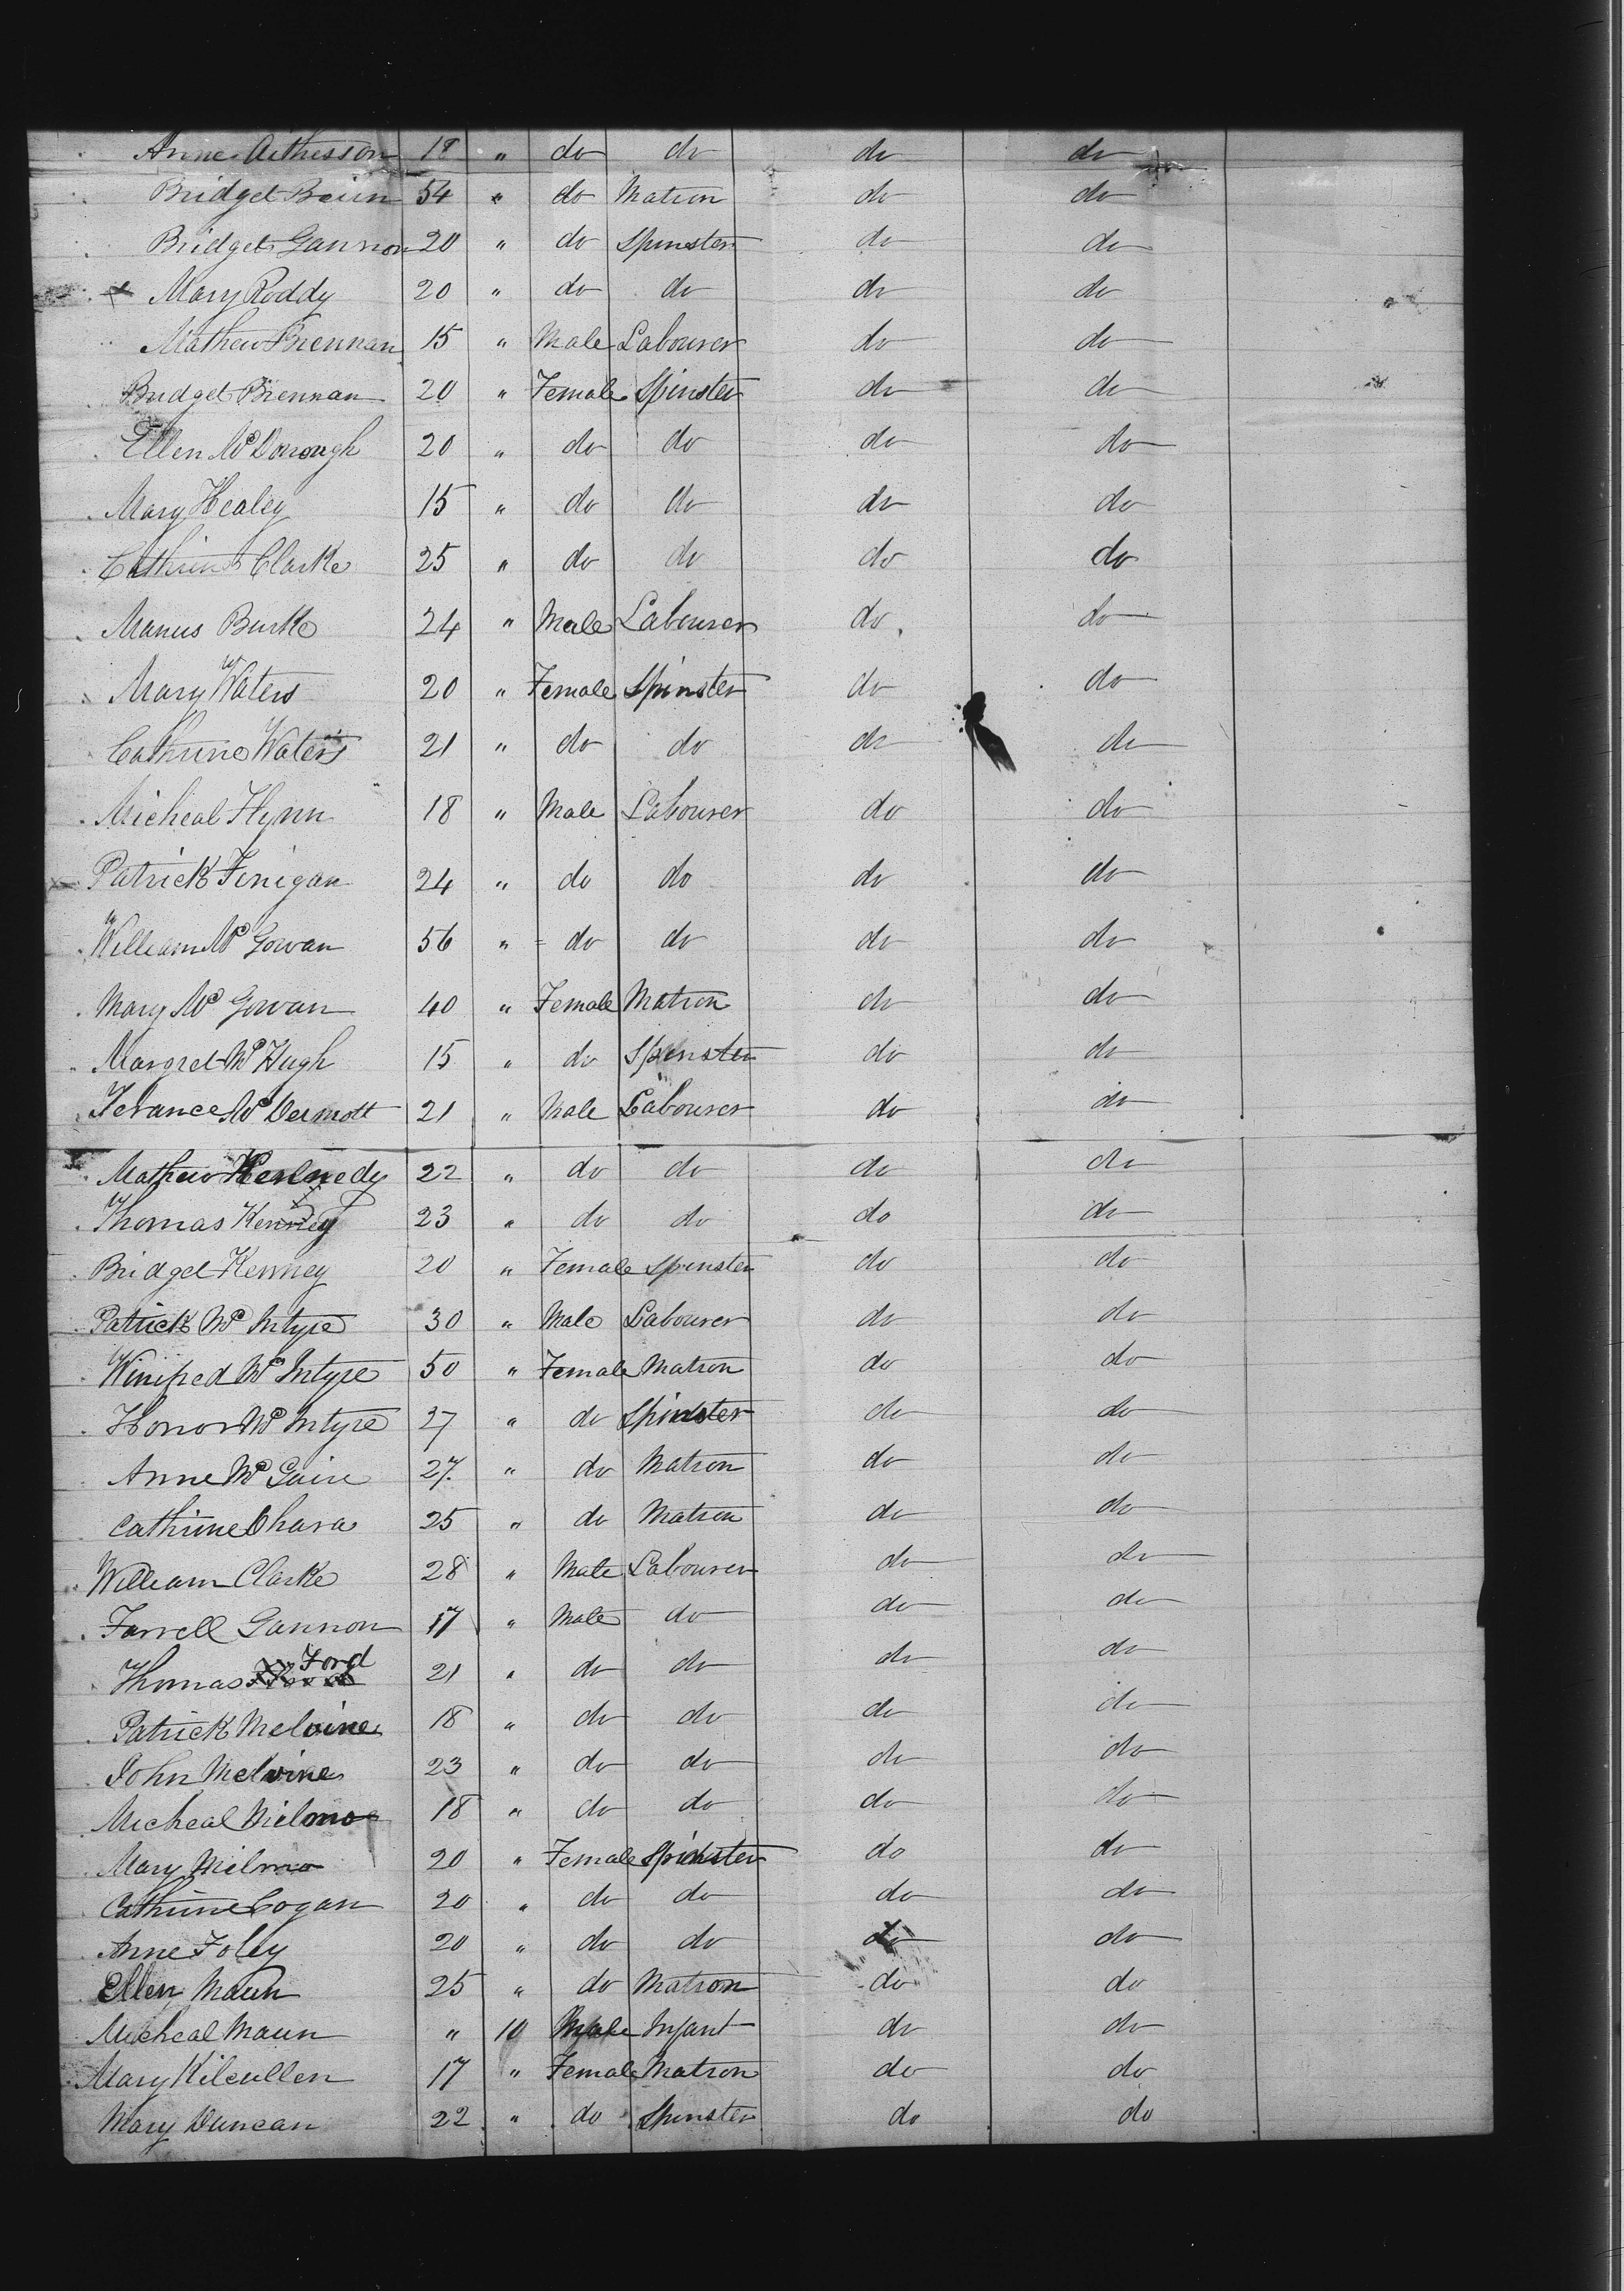 Anne Aitkesson 18 " do do do do
Bridget Beirn 54 " do Matron do do
Bridget Gannon 20 " do Spinster do do
x Mary Roddy 20 " do do do do
Mathew Brennan 15 " Male Labourer do do
Bridget Brennan 20 " Female Spinster do do
Ellen McDonough 20 " do do do do
Mary Healey 15 " do do do do
Cathrine Clarke 25 " do do do do
Manus Burke 24 " Male Labourer do do
Mary Waters 20 " Female Spinster do do
Cathrine Waters 21 " do do do do
Micheal Flynn 18 " Male Labourer do do
Patrick Finigan 24 " do do do do
William McGowan 56 " do do do do
Mary McGowan 40 " Female Matron do do
Margret McHugh 15 " do Spinster do do
Terance McDermott 21 " Male Labourer do do
Mathew Kennedy 22 " do do do do
Thomas Kenney 23 " do do do do
Bridget Kenney 20 " Female Spinster do do
Patrick McIntyre 30 " Male Labourer do do
Winifred McIntyre 50 " Female Matron do do
Honor McIntyre 27 " do Spinster do do
Anne McGuire 27 " do Matron do do
Cathrine Ohara 25 " do Matron do do
William Clarke 28 " Male Labourer do do
Farrell Gannon 17 " Male do do do
Thomas Ford 21 " do do do do
Patrick Melvine 18 " do do do do
John Melvine 23 " do do do do
Micheal Milmo 18 " do do do do
Mary Milmo 20 " Female Spinster do do
Cathrine Cogan 20 " do do do do
Anne Foley 20 " do do do do
Ellen Maun 25 " do Matron do do
Micheal Maun " 10 Male Infant do do
Mary Kilcullen 17 " Female Matron do do
Mary Duncan 22 " do Spinster do do